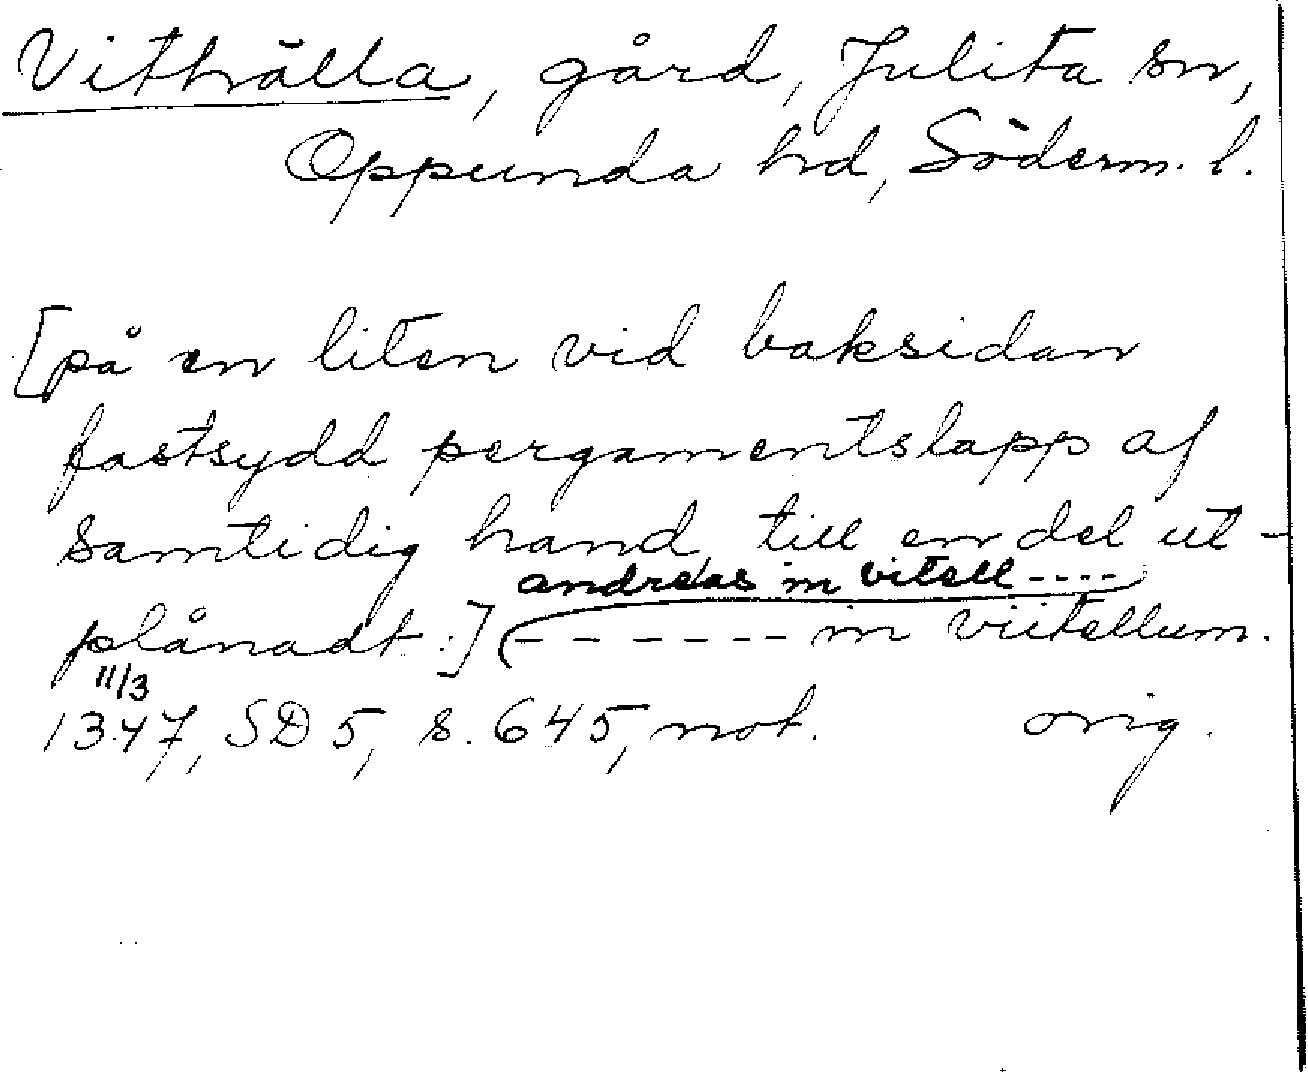 Vithälla, gård, Julita sn,
Oppunda hd, Söderm. l.
[på en liten vid baksidan
fastsydd pergamentslapp af
samtidig hand, till en del ut-
andreas in vitell ----
plånadt.] (------- in viitellum.
11/3
1347, SD 5, s. 645, not. orig.